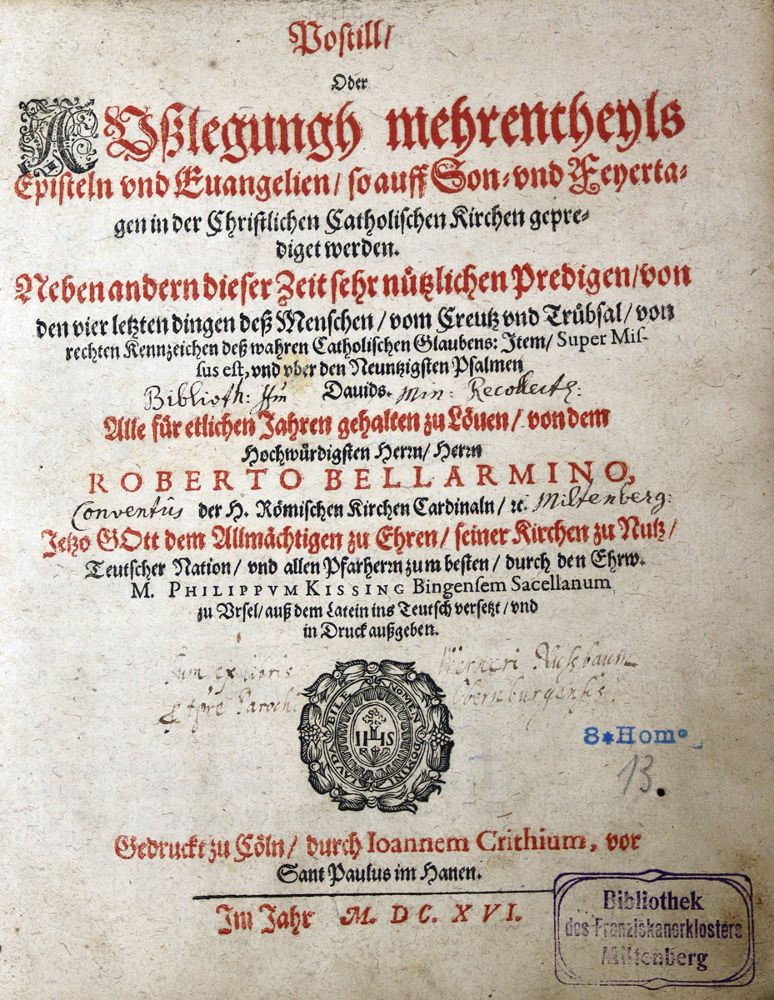 Postill/
Oder
AUßlegungh mehrentheyls
Episteln vnd Euangelien/ so auff Son- vnd Feyerta-
gen in der Christlichen Catholischen Kirchen gepre-
diget werden.
Neben andern dieser Zeit sehr nützlichen Predigen/ von
den vier letzten dingen deß Menschen/ vom Creutz vnd Trübsal/ von
rechten Kennzeichen deß wahren Catholischen Glaubens: Item/ Super Mis-
sus est, vnd vber den Neuntzigsten Psalmen
Biblioth: Dauids. Min: Recollectz:
Alle für etlichen Jahren gehalten zu Löuen/ von dem
Hochwürdigsten Herrn/ Herrn
ROBERTO BELLARMINO,
Conventûs der H. Römischen Kirchen Cardinaln/ ꝛc. Miltenberg:
Jetzo GOtt dem Allmächtigen zu Ehren/ seiner Kirchen zu Nutz/
Teutscher Nation/ vnd allen Pfarherrn zum besten/ durch den Ehrw.
M. PHILIPPVM KISSING Bingensem Sacellanum
zu Vrsel/ auß dem Latein ins Teutsch versetzt/ vnd
in Druck außgeben.
Sum ex libris Werneri Nussbaum
Parochi Obernburgensis
LAVDABILE NOMEN DOMINI
IHS
8*Hom
13.
Gedruckt zu Cöln/ durch Ioannem Crithium, vor
Sant Paulus im Hanen.
Im Jahr M. DC. XVI.
Bibliothek
des Franziskanerklosters
Miltenberg